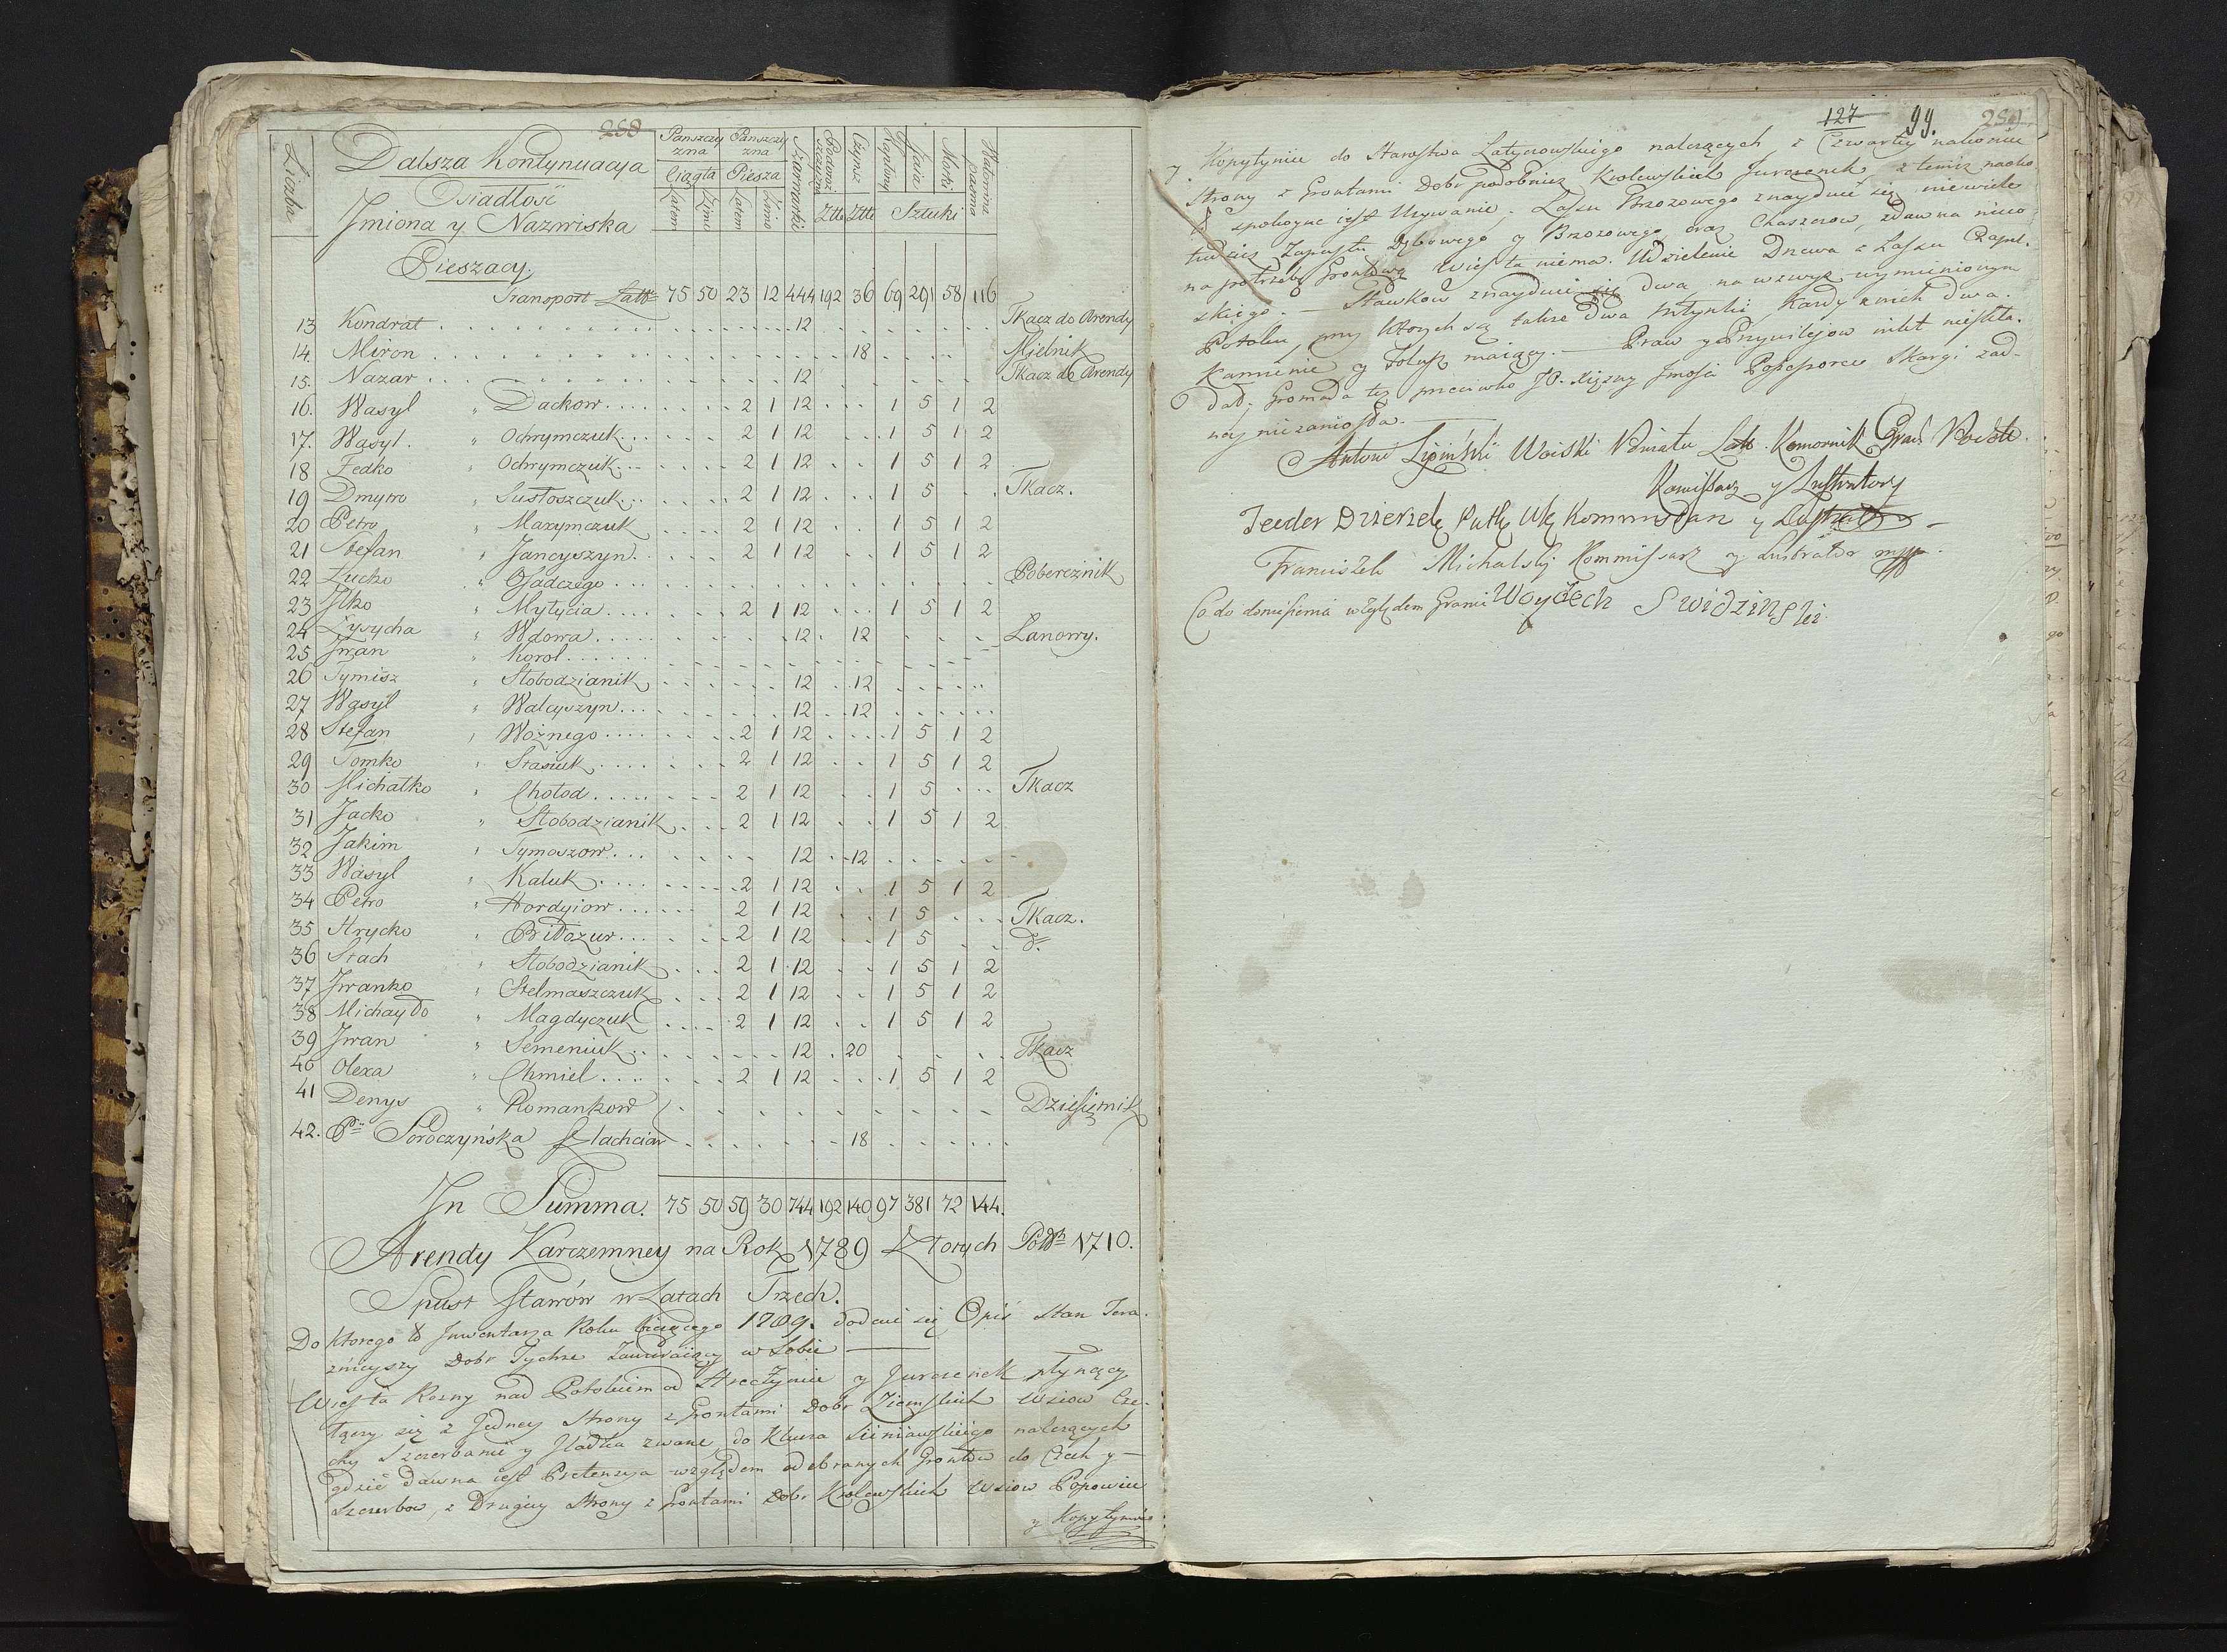 258
Liczba
Dalsza Kontynuacja
Osiadłość
Jmiona y Nazwiska
Panszczyzna Ciągła Latem Zimą
Panszczyzna Piesza Latem Zimą
Szarwarki
Podorożczyzna Złłte
Czynsz Złłte
Kapłony Jaia Motki Sztuki
Watornina pasma
Pieszacy.
Transport Latus 75 50 23 12 444 192 36 69 291 58 116
13 Kondrat 12 Tkacz do Arendy
14. Miron 18 Mielnik
15. Nazar 12 Tkacz do Arendy
16. Wasyl " Dackow 2 1 12 1 5 1 2
17. Wasyl. " Ochrymczuk 2 1 12 1 5 1 2
18 Fedko " Ochrymczuk 2 1 12 1 5 1 2
19 Dmytro " Sustoszczuk 2 1 12 1 5 Tkacz.
20 Petro " Maxymczuk 2 1 12 1 5 1 2
21 Stefan " Jancyszyn 2 1 12 1 5 1 2
22 Łucko " Osadczego Pobereżnik
23 Jlko " Mytycia 2 1 12 1 5 1 2
24 Łysycha " Wdowa 12 12 Łanowy.
25 Jwan " Korol
26 Tymisz " Słobodzianik 12 12
27 Wasyl " Walcyszyn 12 12
28 Stefan " Woźnego 2 1 12 1 5 1 2
29 Tomko " Stasiuk 2 1 12 1 5 1 2
30 Michałko " Chołod 2 1 12 1 5 Tkacz
31 Jacko " Słobodzianik 2 1 12 1 5 1 2
32 Jakim " Tymoszow 12 12
33 Wasyl " Kaluk 2 1 12 1 5 1 2
34 Petro " Hordyiow 2 1 12 1 5 Tkacz.
35 Hrycko " Bidożur 2 1 12 1 5 do.
36 Stach " Słobodzianik 2 1 12 1 5 1 2
37 Jwanko " Stelmaszczuk 2 1 12 1 5 1 2
38 Michaydo " Magdyczuk 2 1 12 1 5 1 2
39 Jwan " Semeniuk 12 20 Tkacz
40 Olexa " Chmiel 2 1 12 1 5 1 2
41 Denys " Romankow Dziesiętnik
42. Pni Soroczyńska Szlachcian 18
Jn Summa. 75 50 59 30 744 192 140 97 381 72 144.
Arendy Karczemney na Rok 1789 Złotych Polsh 1710.
Spust Stawów w Latach Trzech.
Do ktorego to Jnwentarza Roku bieżącego 1789. dodaie się Opis Stan Tera-
znieyszy Dobr Tychże Zawieraiący w Sobie
Wieś ta Rozny nad Potokiem od Hreczynie y Jurczenek płynący
łączy się z Jedney Strony z Grontami Dobr Ziemskich Wsiow Cze-
chy Szczerbanie y Hładka zwane do Klucza Sieniawskiego należących
gdzie dawna iest Pretensya względem odebranych Grontow do Czech y
Szczerbow, z Drugiey Strony z Grontami Dobr Krolewskich Wsiow Popowiec
y Kopytyniec
127 99. 259
y Kopytyniec do Starostwa Latyczowskiego należących, z Czwartey nakoniec
Strony z Grontami Dobr podobnież Krolewskich Jurczenek, z temiż nacho
spokoyne iest Używanie. Lasu Brzozowego znayduie się niewiele
tudzież Zapustu Dębowego y Brzozowego, oraz Chaszczow, zdawna nieco
na potrzebę Grontową Wieś ta niema. Udzielenie Drzewa z Lasu Czapl-
skiego. — Stawkow znayduie się dwa, na wzwyż wymienionym
Potoku, przy ktorych są także dwa Młynki, Każdy z nich dwa
Kamienie y Folusz maiący. — Praw y Przywilejow nikt nieskła-
dał, Gromada też przeciwko JO. Xiężny Jmości Possessorce Skargi żad-
ney niezaniosła.
Antoni Lipiński Woiski Powiatu Lat. Komornik Gran: Podol.
Komissarz y Lustrator
Feeder Dzierżek Kommissarz y Lustrator
Franciszek Michalski Kommissarz y Lustrator mpp
Co do doniesienia względem Granic Woyciech Swidzinski